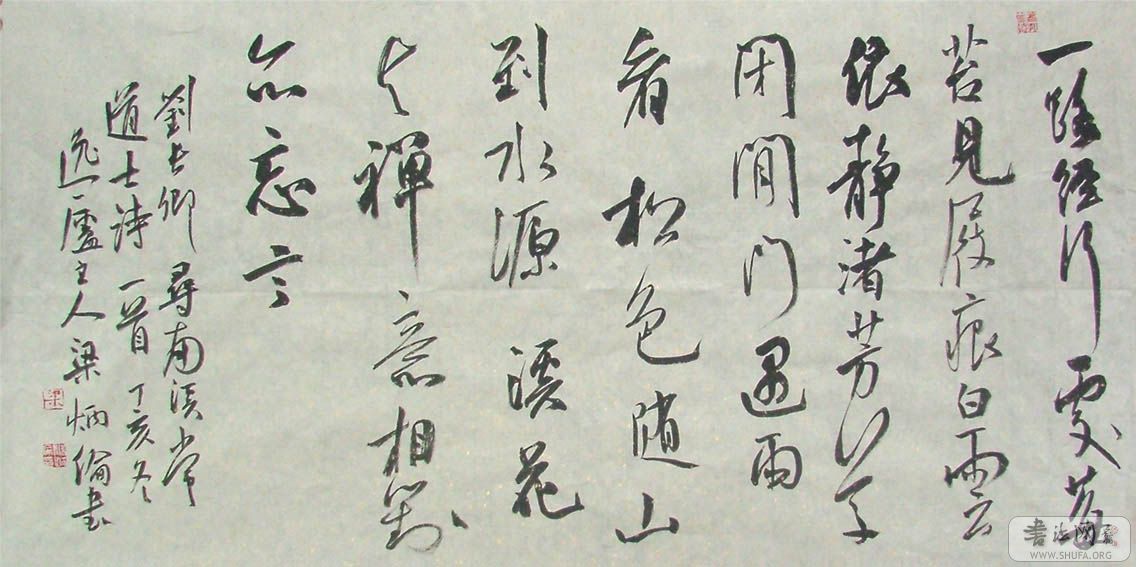 一路經行處莓
苔見屐痕白雲
依静渚芳草
閉閒門過雨
看松色随山
到水源溪花
与禪意相對
亦忘言
劉長卿尋南溪常
道士詩一首丁亥冬
逸廬主人梁炳倫書
書法网
WWW.SHUFA.ORG